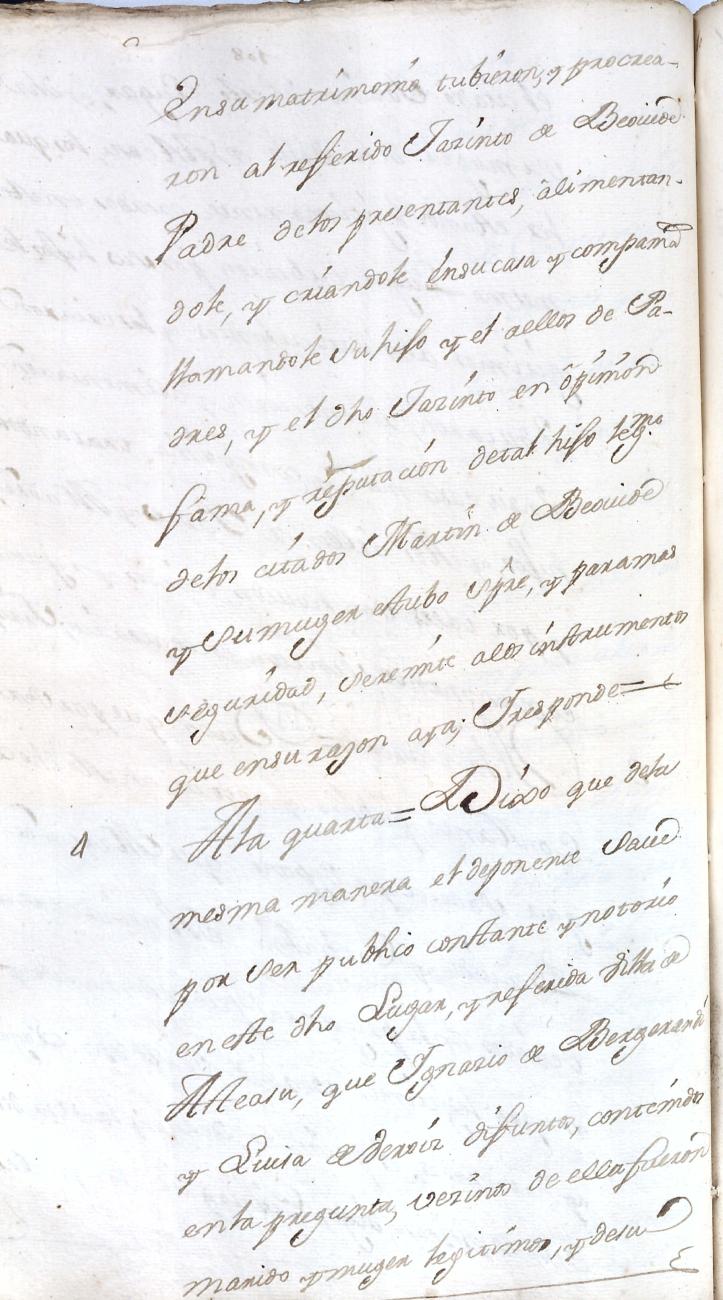 En su matrimonio tubieron, y procrea-
ron al referido Jazinto de Beovide
Padre de los presentantes, alimentan-
dole, y criandole en su casa y compania
llamandole su hijo y el a ellos de Pa-
dres, y el dho Jazinto en opinion
fama, y reputacion de tal hijo legmo
de los citados Martin de Beovide
y su muger estubo spre, y para mas
seguridad, se remite a los instrumentos
que en su razon aya; Y responde=
4 A la quarta= Dixo que de la
mesma manera el deponente save
por ser publico constante y notorio
en este dho Lugar, y referida villa de
Asteasu, que Ignazio de
y Luisa de difuntos, contenidos
en la pregunta, vezinos de ella fueron
marido y muger legitimos, y de su